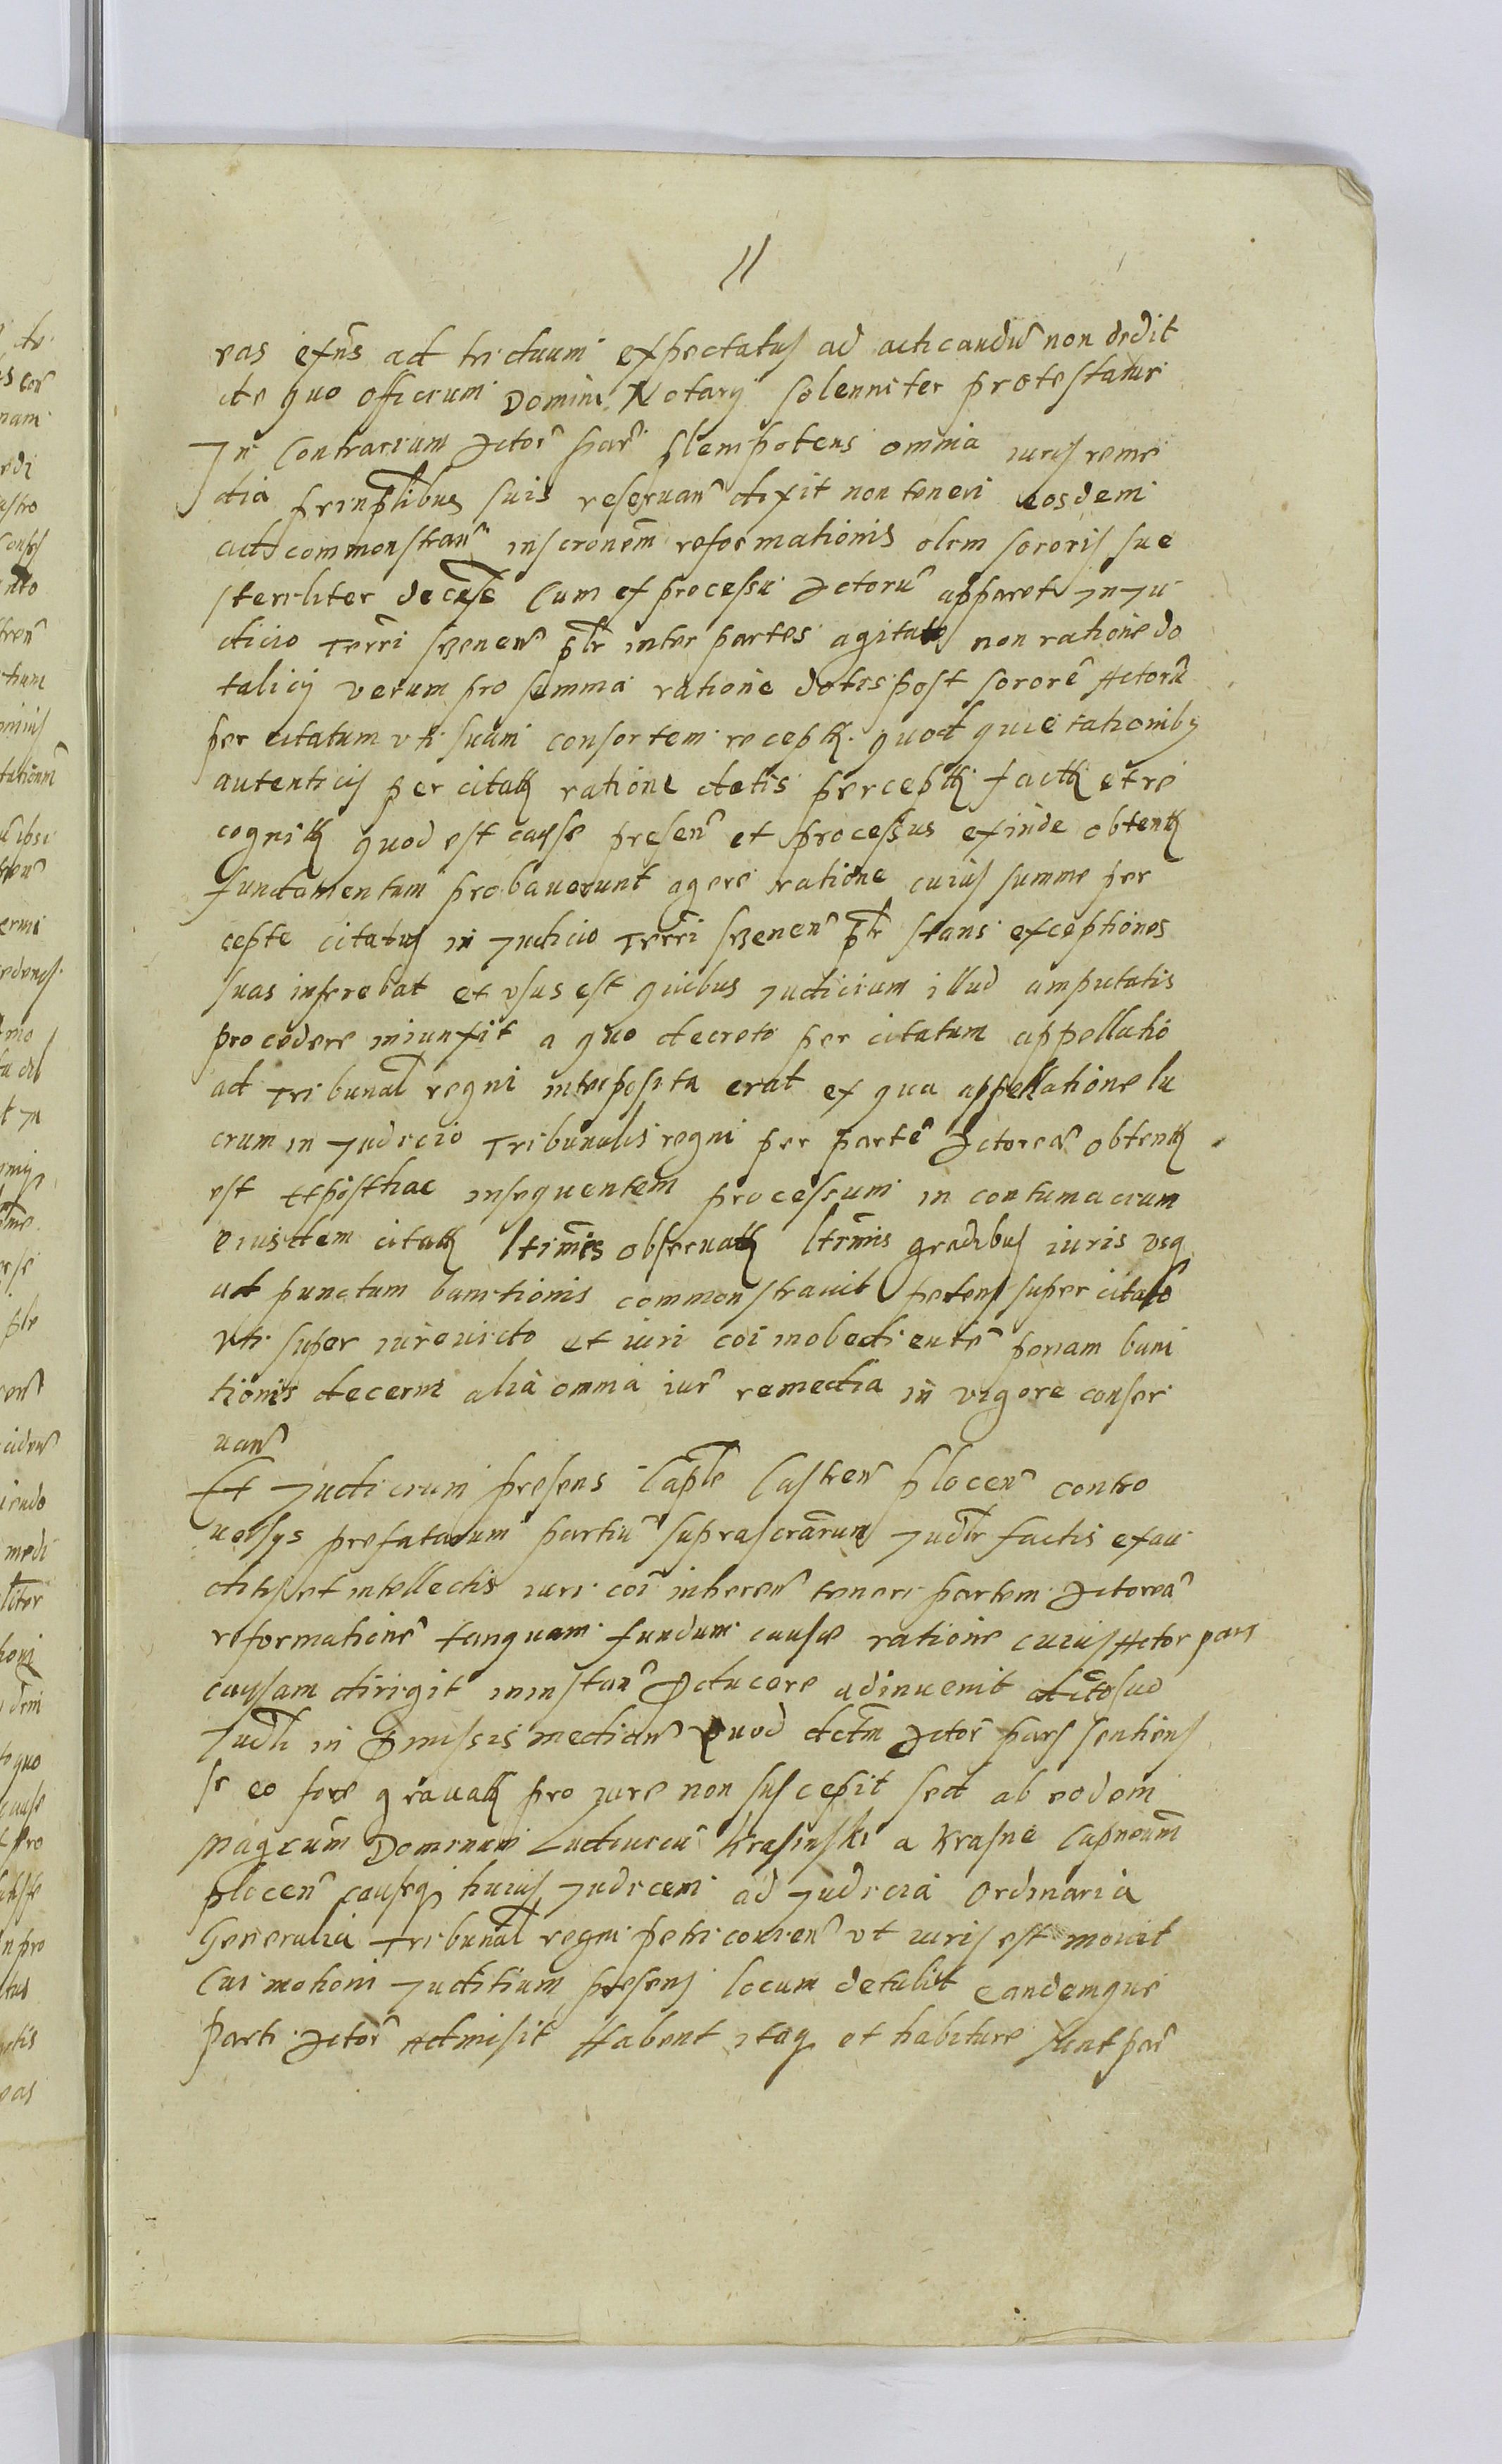 11
eas exñs ad triduum expectatus ad acticandũ non dedit
de quo officium Domini Notarij solenniter protestatur
In Contrarium Actor̃ par̃ plempotens omnia iuris reme
dia prinplibus suis reseruan̄ dixit non teneri eosdem
ad commonstran̄ inscronem̃ reformationis olim sororis sue
steriliter decesse Cum ex processu Actorũ apparet In Ju
dicio Terri Srzenen̄ plr inter partes agitato non ratione do
talicij verum pro summa ratione dotis post sororẽ Actorũ
per citatum vti suam consortem recept. quod quietationib9
autenticis per citat ratione dotis percept fact et re
cognit quod est cause presen̄ et processus exinde obtent
fundamentum probauerunt agere ratione cuius summe per
cepte citatus in Judicio Terri Srzenen̄ plr stans exceptiones
suas inferebat et vsus est quibus Judicium illud amputatis
procedere iniunxit a quo decreto per citatum appellatio
ad Tribunal regni interposita erat ex qua appellatione lu
crum in Judicio Tribunalis regni per partẽ Actoreã obtent
est et posthac insequentem processum in contumacium
eiusdem citat ltimis obseruat ltimis gradibus iuris vsq
ad punctum banitionis commonstrauit petens super citato
vti super iureuicto et iuri coi inobedientẽ penam bani
tionis decerni alia omnia iur̃ remedia in vigore conser
uan̄
Et Judicium presens Caple Castren̄ plocen̄ contro
uersys prefatarum partiũ suprascrarum Judlr factis exau
ditis et intellectis iuri coi inheren̄ teneri partem Actoreã
reformationẽ tanquam fundum cause ratione cuius Actor pars
causam dirigit in instan̄ Producere adinuenit dicto suo
Judli in Premissis median̄ Quod dctm Actor̃ pars sentiens
se eo fore grauat pro iure non suscepit sed ab eodem
Magcum Dominum Ludouicũ Krasinski a Krasne Capneum
plocen̄ causeq huius Judicem ad Judicia Ordinaria
Generalia Tribunal regni petricouien̄ vt iuris est mouit
Cui motioni Juditium presens locum detulit eandemque
Parti Actor̃ Admisit Habent itaq et habiture sunt par̃